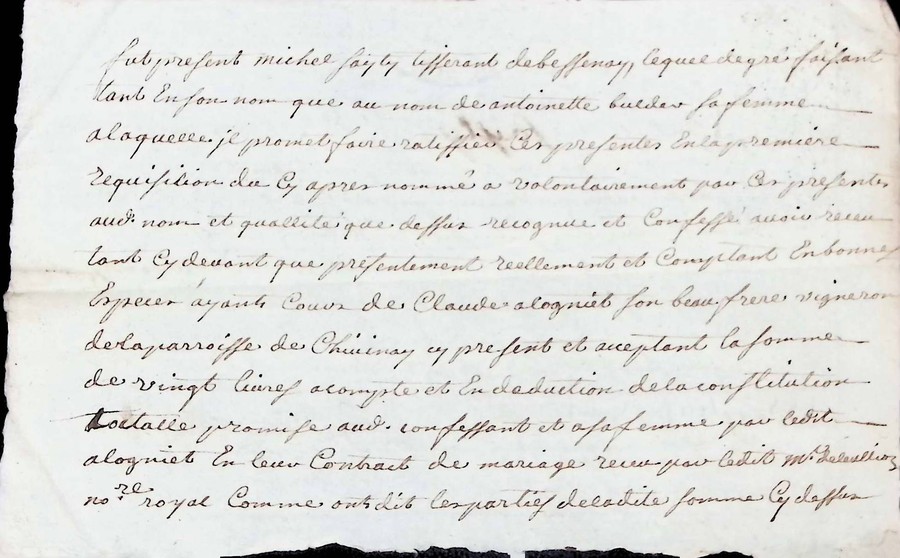 fut present michel sayty tisserant de bessenay, lequel de gré faisant
tant En son nom que au nom de antoinette buldev sa femme
a laquelle jl promet faire ratiffier Ces presentes En la premiere
requisition du Cy apres nommé a volontairement par Ces presentes
aud. nom et quallite que dessus recognue et Confessé avoir receu
tant Cy devant que presentement reellement et Comptant En bonnes
Especes ayants Cours de Claude alogniet son beau frere vigneron
de la parroisse de Chivinay cy present et acceptant la somme
de vingt livres a compte et En deduction de la constitution
dottalle promise aud. confessant et a sa femme par ledit
alogniet En leur Contract de mariage receu par ledit Me.
no.re royal Comme ont dit les parties de ladite somme Cy dessus